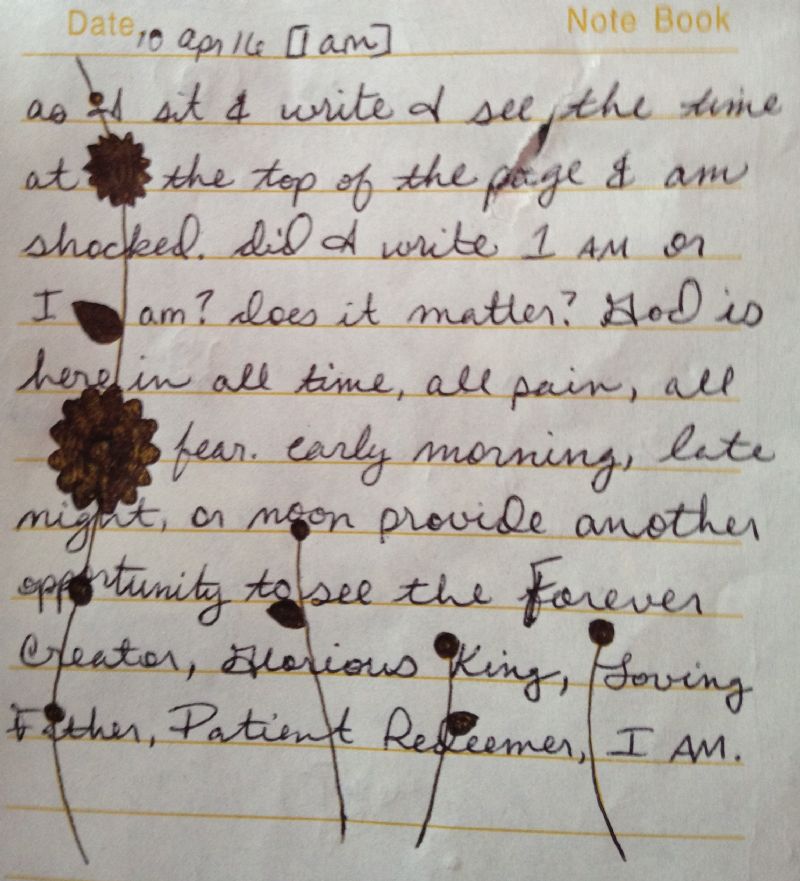 Date 10 apr 16 [1 am] Note Book
as I sit & write I see the time
at the top of the page & am
shocked. did I write 1 AM or
I am? does it matter? God is
here in all time, all pain, all
fear. early morning, late
night, or noon provide another
opportunity to see the Forever
Creator, Glorious King, Loving
Father, Patient Redeemer, I AM.